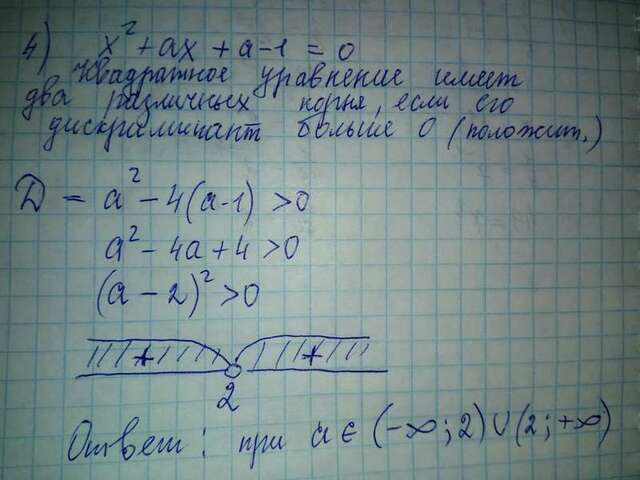 4) x² + ax + a - 1 = 0
Квадратное уравнение имеет
два различных корня, если его
дискраминант больше 0 (положит.)
D = a² - 4(a-1) > 0
a² - 4a + 4 > 0
(a - 2)² > 0
+ +
2
Ответ: при a ∈ (-∞; 2) ∪ (2; +∞)